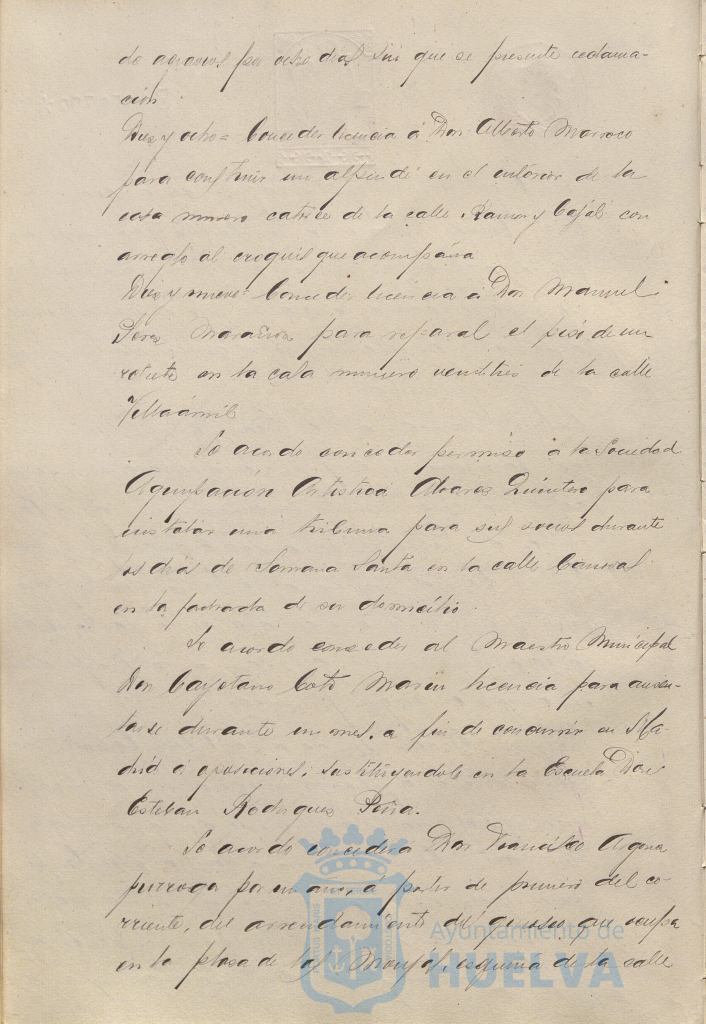 de agravios por ocho dias sin que se presente reclama-
ción.
Diez y ocho= Conceder licencia á Don Alberto Marroco
para construir un alpende en el interior de la
casa numero catorce de la calle Ramon y Cajal con
arreglo al croquis que acompaña
Diez y nueve= Conceder licencia á Don Manuel
Perez Marañon para reparar el piso de un
retrete en la casa número veintitres de la calle
Villaámil
Se acordo conceder permiso á la Sociedad
Agrupación Artistica Alvarez Quintero para
instalar una tribuna para sus socios durante
los dias de Semana Santa en la calle Canovas
en la fachada de su domicilio.
Se acordo conceder al Maestro Municipal
Don Cayetano Coto Marin licencia para ausen-
tarse durante un mes, a fin de concurrir en Ma-
drid á oposiciones, sustituyendole en la Escuela Don
Esteban Rodriguez Peña.
Se acordo conceder á Don Francisco
prorroga por un año, á partir de primero del co-
rriente, del arrendamiento del quiosco que ocupa
en la plaza de las Monjas, esquina de la calle
Ayuntamiento de
HUELVA